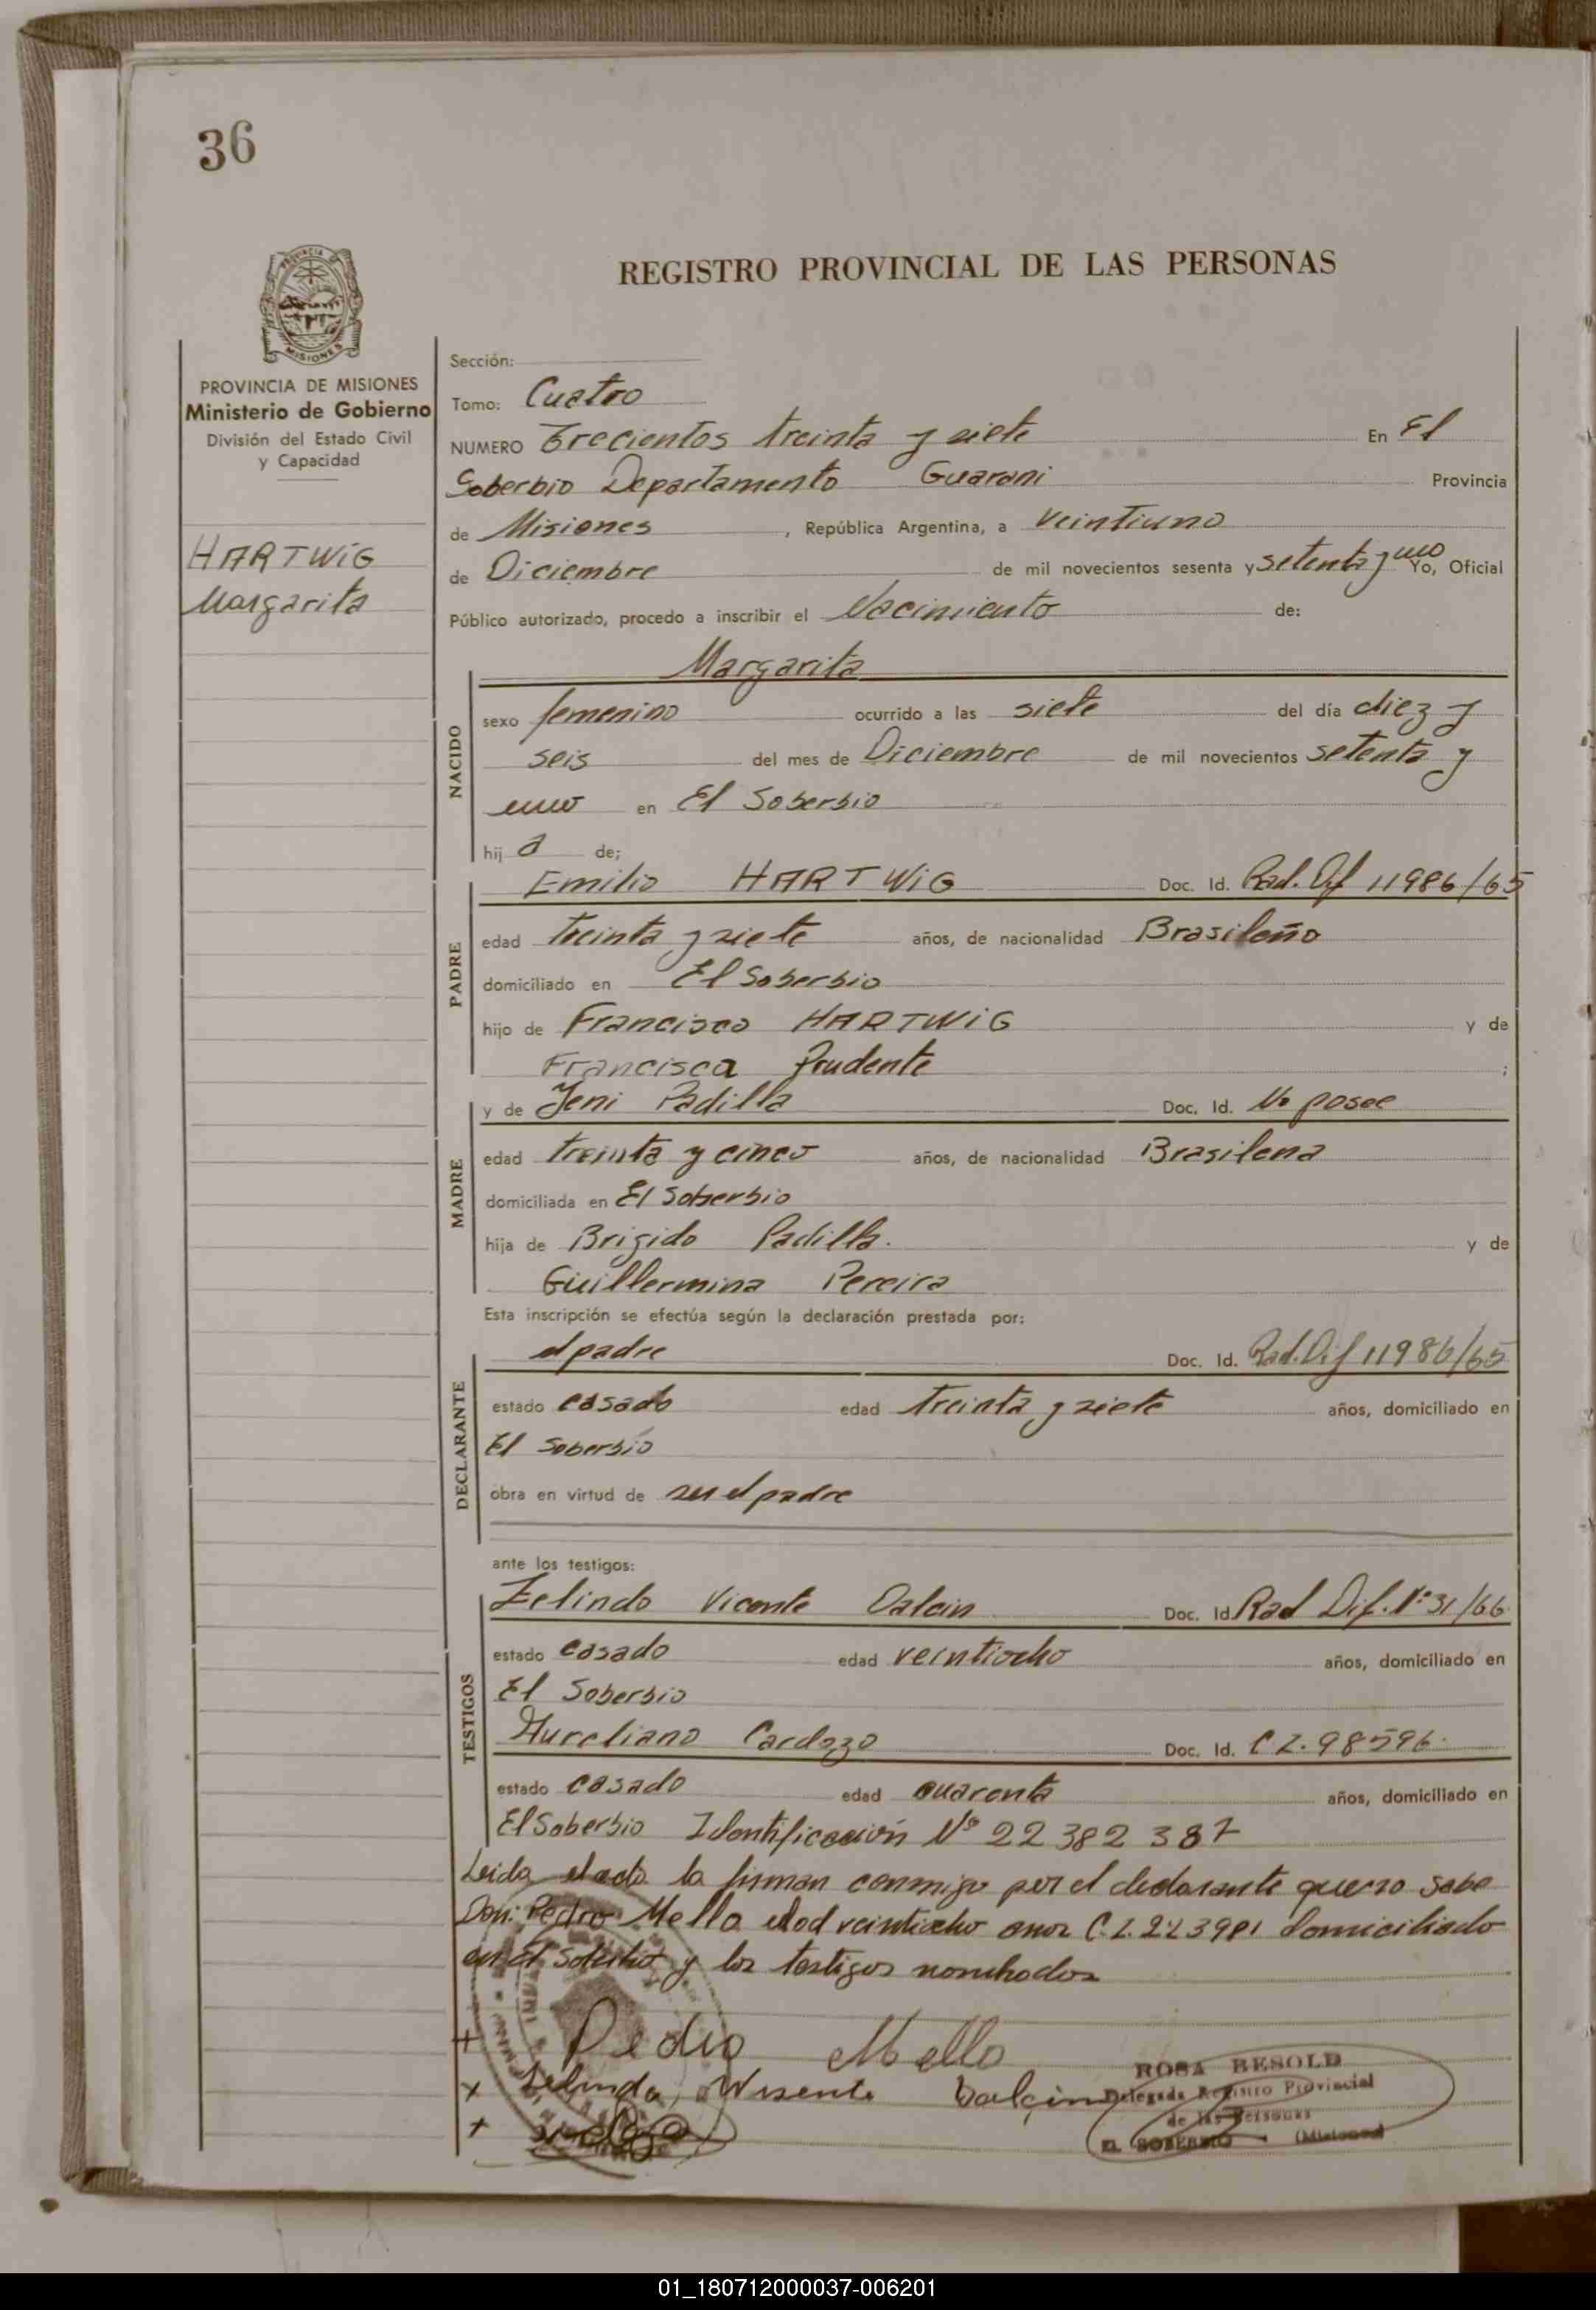 36
REGISTRO PROVINCIAL DE LAS PERSONAS
PROVINCIA DE MISIONES
Ministerio de Gobierno
División del Estado Civil
y Capacidad
HARTWiG
Margarita
Sección:
Tomo: Cuatro
NUMERO Trecientos treinta y siete En El
Soberbio Departamento Guarani Provincia
de Misiones, República Argentina, a Veintiuno
de Diciembre de mil novecientos sesenta y setenta y uno Yo, Oficial
Público autorizado, procedo a inscribir el Nacimiento de:
Margarita
NACIDO
sexo femenino ocurrido a las siete del día diez y
seis del mes de Diciembre de mil novecientos setenta y
uno en El Soberbio
hij a de;
PADRE
Emilio HARTWiG Doc. Id. Rad. Dif 11986/65
edad treinta y siete años, de nacionalidad Brasileño
domiciliado en El Soberbio
hijo de Francisco HARTWiG y de
Francisca Prudente ;
MADRE
y de Jeni Padilla Doc. Id. No posee
edad treinta y cinco años, de nacionalidad Brasilena
domiciliada en El Soberbio
hija de Brigido Padilla. y de
Guillermina Pereira
Esta inscripción se efectúa según la declaración prestada por:
DECLARANTE
el padre Doc. Id. Rad. Dif 11986/65
estado casado edad treinta y siete años, domiciliado en
El Soberbio
obra en virtud de ser el padre
ante los testigos:
TESTIGOS
Zelindo Vicente Dalcin Doc. Id. Rad Dif. Nº 31/66
estado casado edad veintiocho años, domiciliado en
El Soberbio
Aureliano Cardozo Doc. Id. C I. 98596.
estado casado edad cuarenta años, domiciliado en
El Soberbio Identificación Nº 22 382 387
Leida el acta la firman conmigo por el declarante que no sabe
Don: Pedro Mello edad veintiocho anos C.I. 223981 domiciliado
en El Soberbio y los testigos nombrados
+ Pedro Mello
x Selindo Wisente Dalcin
+
ROSA BESOLD
Delegada Registro Provincial
de las Personas
EL SOBERBIO (Misiones)
01_180712000037-006201